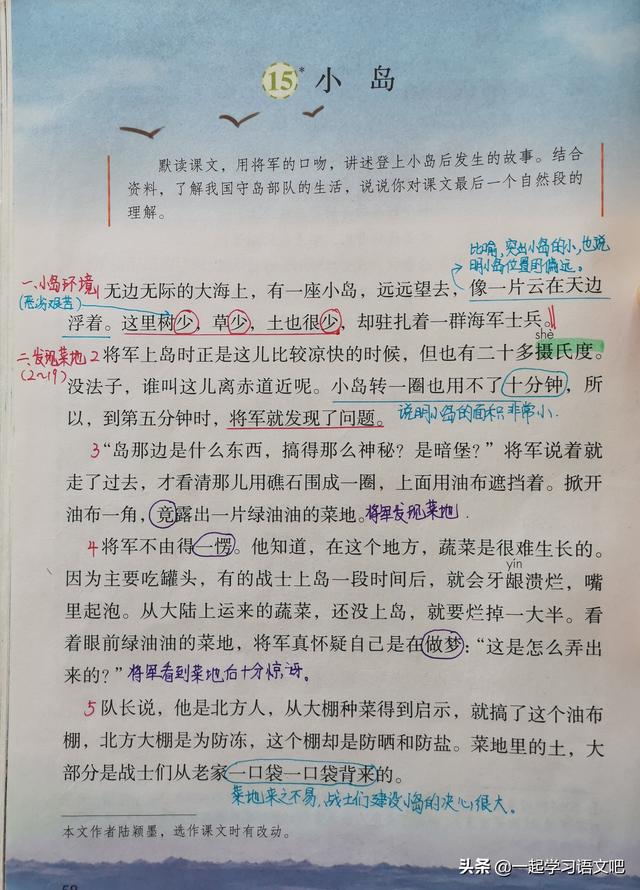 15* 小 岛
默读课文，用将军的口吻，讲述登上小岛后发生的故事。结合
资料，了解我国守岛部队的生活，说说你对课文最后一个自然段的
理解。
比喻，突出小岛的小，也说
明小岛位置的偏远。
一、小岛环境
(恶劣艰苦)
1 无边无际的大海上，有一座小岛，远远望去，像一片云在天边
浮着。这里树少，草少，土也很少，却驻扎着一群海军士兵。
shè
二、发现菜地
(2~19)
2 将军上岛时正是这儿比较凉快的时候，但也有二十多摄氏度。
没法子，谁叫这儿离赤道近呢。小岛转一圈也用不了十分钟，所
以，到第五分钟时，将军就发现了问题。
说明小岛的面积非常小.
3 “岛那边是什么东西，搞得那么神秘？是暗堡？”将军说着就
走了过去，才看清那儿用礁石围成一圈，上面用油布遮挡着。掀开
油布一角，竟露出一片绿油油的菜地。将军发现菜地.
4 将军不由得一愣。他知道，在这个地方，蔬菜是很难生长的。
yín
因为主要吃罐头，有的战士上岛一段时间后，就会牙龈溃烂，嘴
里起泡。从大陆上运来的蔬菜，还没上岛，就要烂掉一大半。看
着眼前绿油油的菜地，将军真怀疑自己是在做梦：“这是怎么弄出
来的？”将军看到菜地后十分惊讶。
5 队长说，他是北方人，从大棚种菜得到启示，就搞了这个油布
棚，北方大棚是为防冻，这个棚却是防晒和防盐。菜地里的土，大
部分是战士们从老家一口袋一口袋背来的。
菜地来之不易，战士们建设小岛的决心很大。
本文作者陆颖墨，选作课文时有改动。
58
头条 @一起学习语文吧